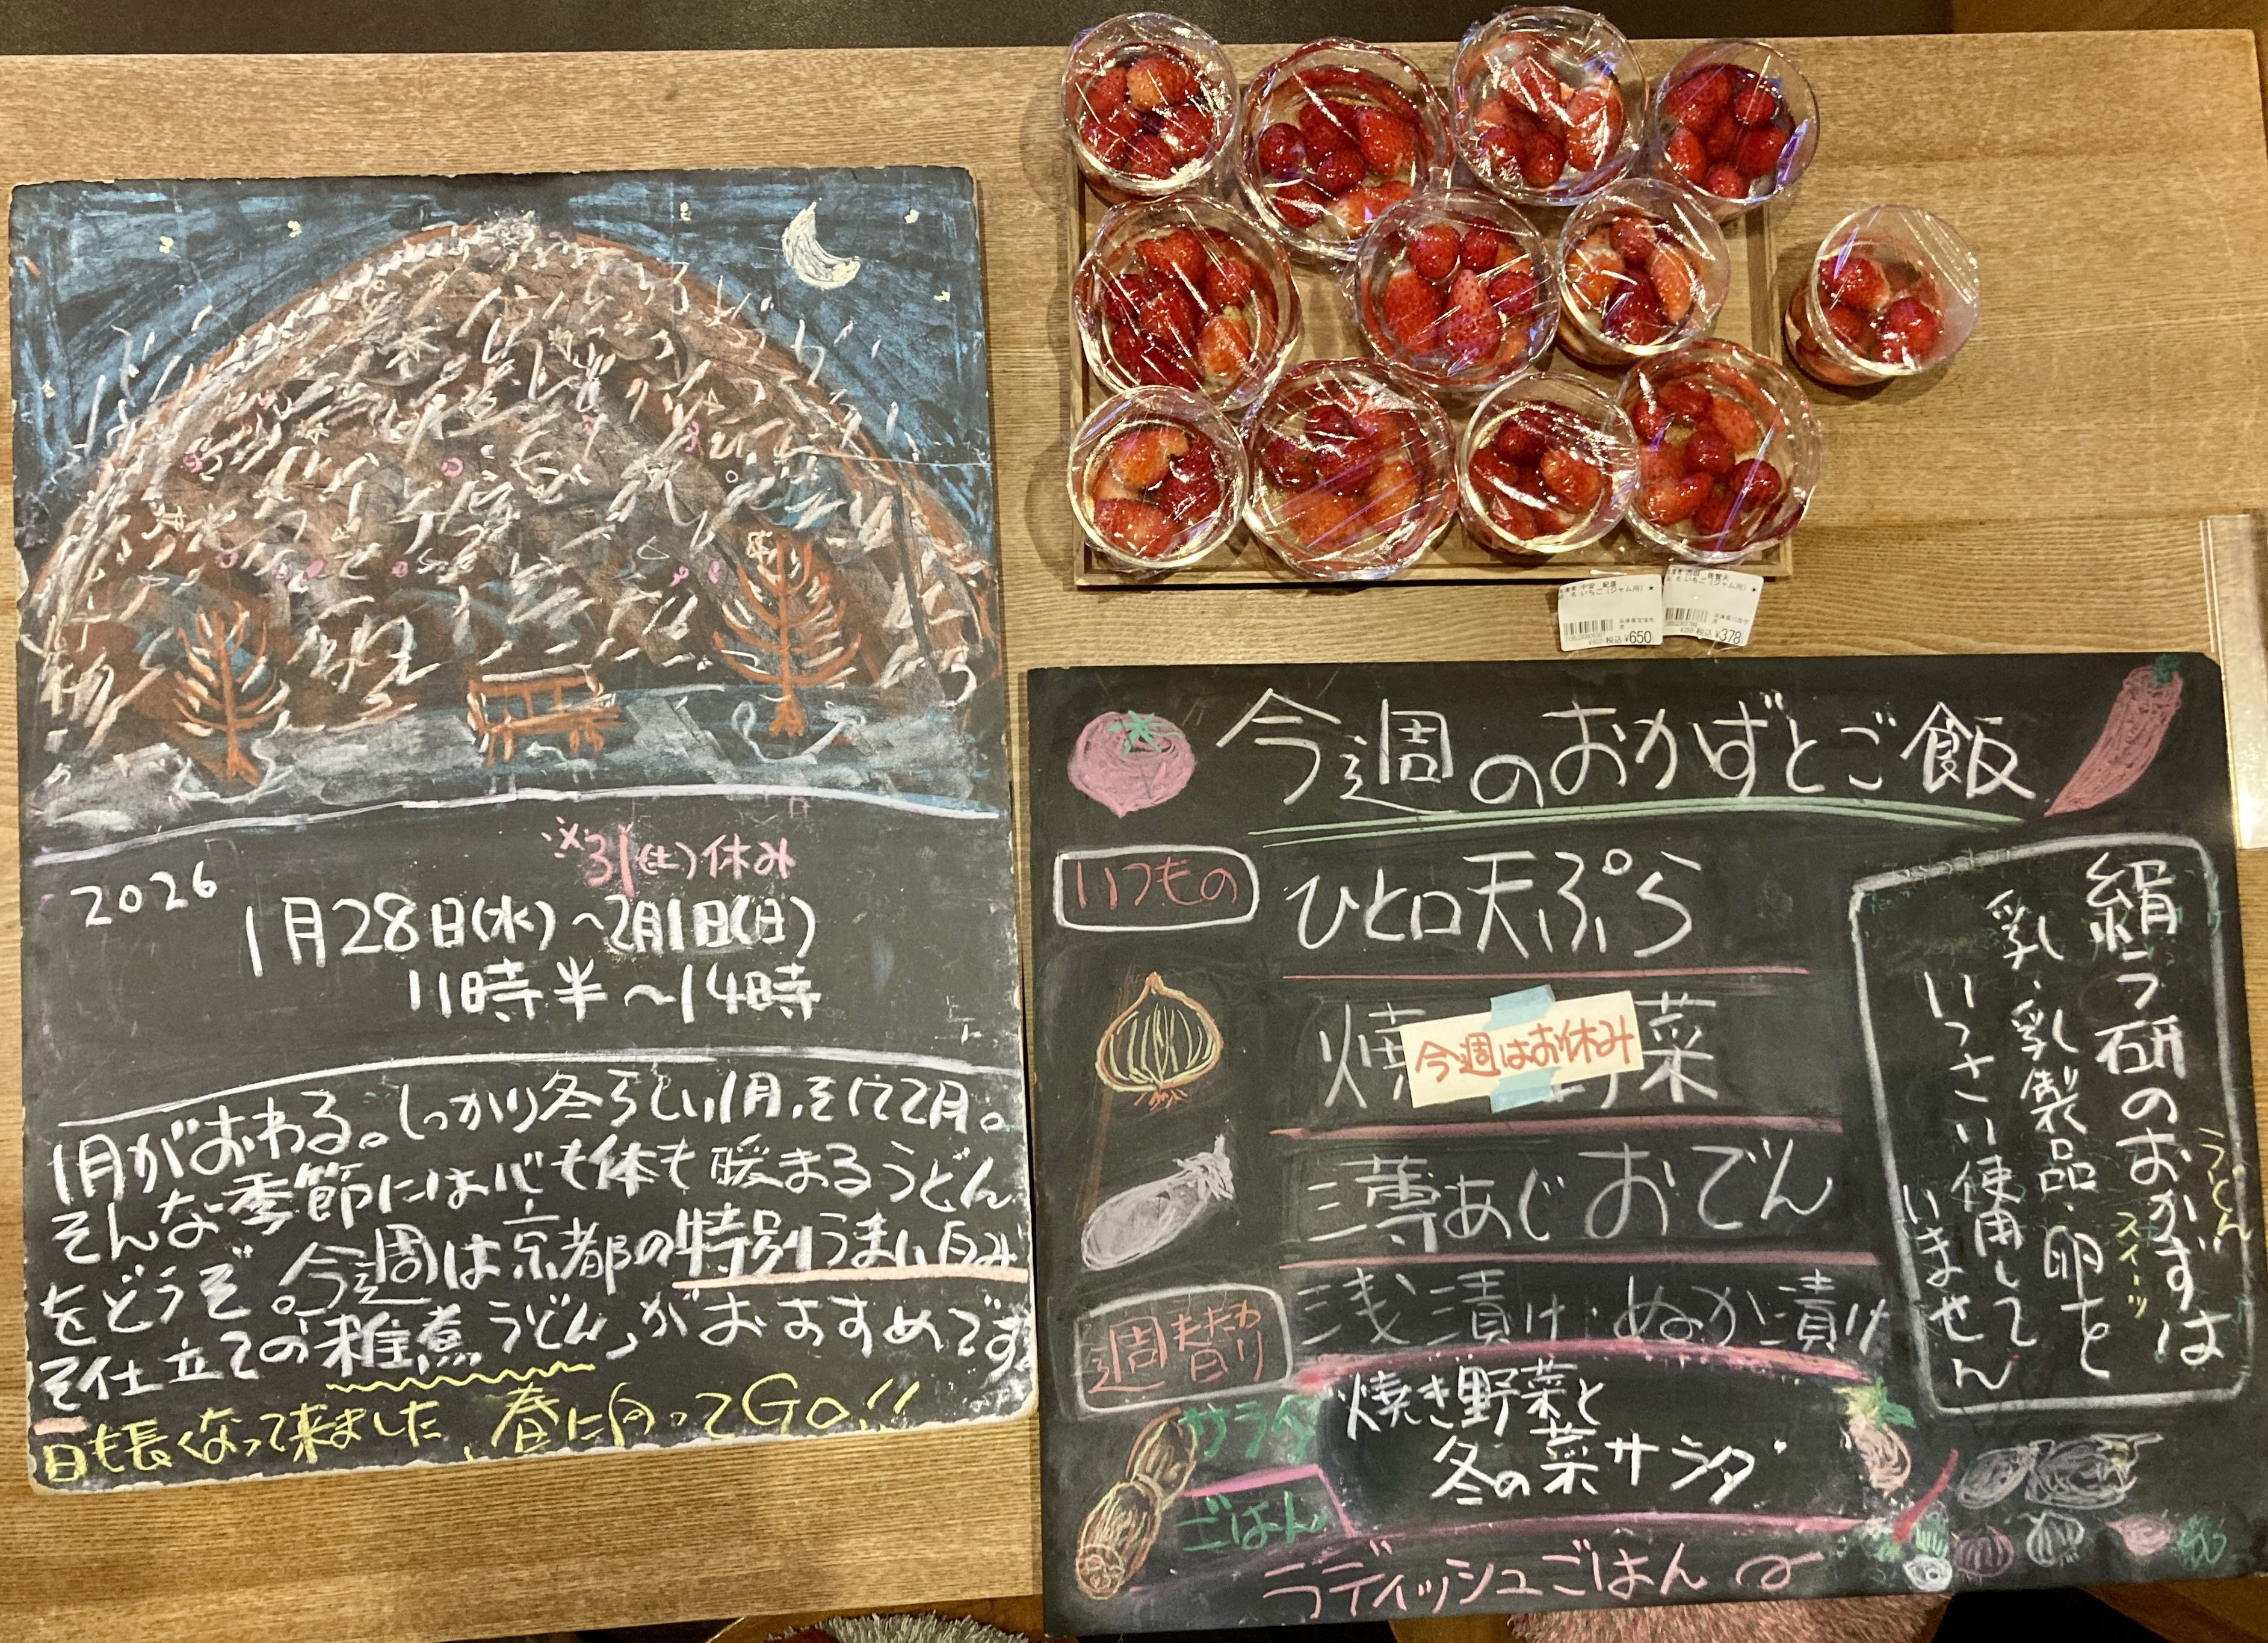 2026
※31(土)休み
1月28日(水)～2月1日(日)
11時半～14時
1月がおわる。しっかり冬らしい1月、そして2月。
そんな季節には心も体も暖まるうどん
をどうぞ。今週は京都の特別うまい白み
そ仕立ての雑煮うどん、がおすすめです
日も長くなって来ました、春に向ってGO!!
いちご(ジャム用)
税込¥650
いちご(ジャム用)
税込¥378
今週のおかずとご飯
いつもの
ひと口天ぷら
焼 野菜
今週はお休み
三尊あじおでん
浅漬け・ぬか漬け
週替わり
サラダ
焼き野菜と
冬の菜サラダ
ごはん
ラディッシュごはん
絹ラ研のおかずは
うどん
スイーツ
乳・乳製品・卵を
いっさい使用して
いません